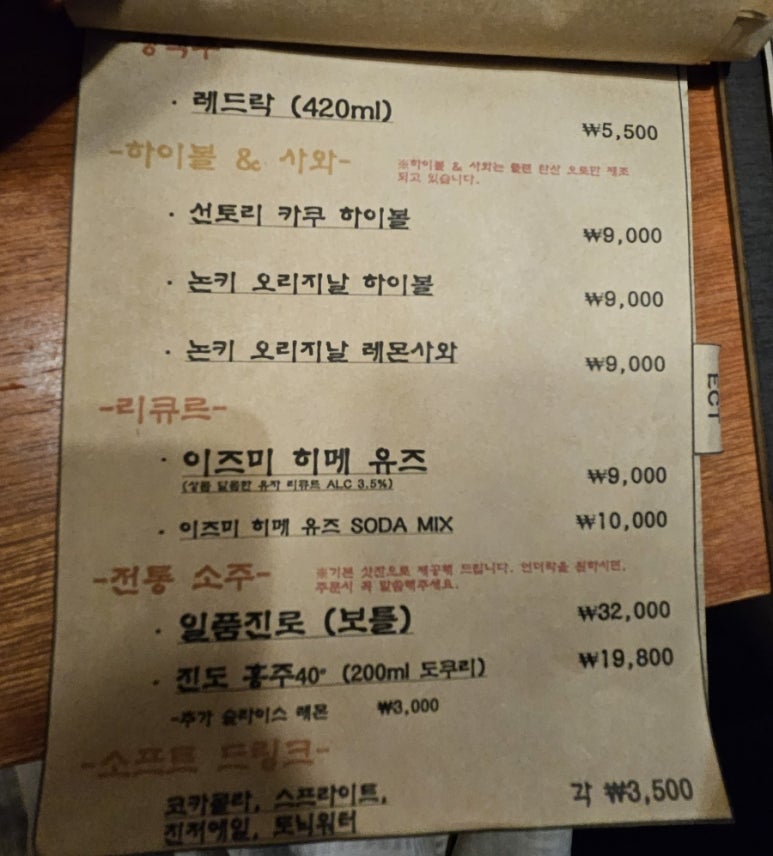 · 레드락 (420ml) ₩5,500
-하이볼 & 사와-
※하이볼 & 사와는 플랜 탄산 오로만 제조
되고 있습니다.
· 선토리 카쿠 하이볼 ₩9,000
· 논키 오리지날 하이볼 ₩9,000
· 논키 오리지날 레몬사와 ₩9,000
ECT
-리큐르-
· 이즈미 히메 유즈 ₩9,000
(상큼 달콤한 유자 리큐르 ALC 3.5%)
· 이즈미 히메 유즈 SODA MIX ₩10,000
-전통 소주-
※기본 샷잔으로 제공해 드립니다. 언더락을 원하시면,
주문시 꼭 말씀해주세요.
· 일품진로 (보틀) ₩32,000
· 진도 홍주40° (200ml 도쿠리) ₩19,800
-추가 슬라이스 레몬 ₩3,000
-소프트 드링크-
코카콜라, 스프라이트,
진저에일, 토닉워터
각 ₩3,500